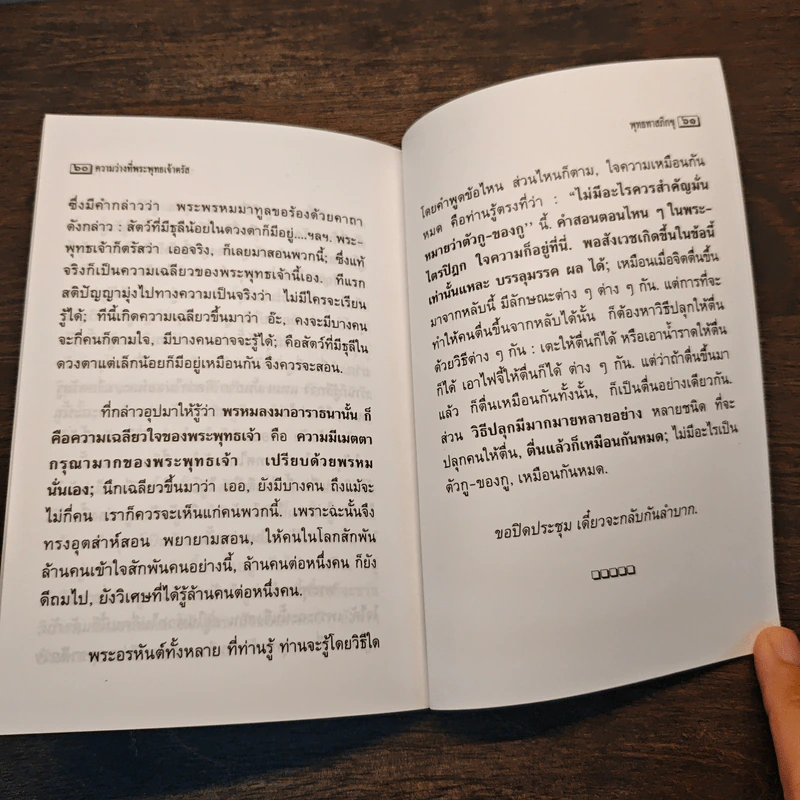 ๖๐ ความว่างที่พระพุทธเจ้าตรัส
ซึ่งมีคำกล่าวว่า พระพรหมมาทูลขอร้องด้วยคาถา
ดังกล่าว : สัตว์ที่มีธุลีน้อยในดวงตาก็มีอยู่....ฯลฯ. พระ-
พุทธเจ้าก็ตรัสว่า เออจริง, ก็เลยมาสอนพวกนี้; ซึ่งแท้
จริงก็เป็นความเฉลียวของพระพุทธเจ้านี้เอง. ทีแรก
สติปัญญามุ่งไปทางความเป็นจริงว่า ไม่มีใครจะเรียน
รู้ได้; ทีนี้เกิดความเฉลียวขึ้นมาว่า อ๊ะ, คงจะมีบางคน
จะกี่คนก็ตามใจ, มีบางคนอาจจะรู้ได้; คือสัตว์ที่มีธุลีใน
ดวงตาแต่เล็กน้อยก็มีอยู่เหมือนกัน จึงควรจะสอน.
ที่กล่าวอุปมาให้รู้ว่า พรหมลงมาอาราธนานั้น ก็
คือความเฉลียวใจของพระพุทธเจ้า คือ ความมีเมตตา
กรุณามากของพระพุทธเจ้า เปรียบด้วยพรหม
นั่นเอง; นึกเฉลียวขึ้นมาว่า เออ, ยังมีบางคน ถึงแม้จะ
ไม่กี่คน เราก็ควรจะเห็นแก่คนพวกนี้. เพราะฉะนั้นจึง
ทรงอุตส่าห์สอน พยายามสอน, ให้คนในโลกสักพัน
ล้านคนเข้าใจสักพันคนอย่างนี้, ล้านคนต่อหนึ่งคน ก็ยัง
ดีถมไป, ยังวิเศษที่ได้รู้ล้านคนต่อหนึ่งคน.
พระอรหันต์ทั้งหลาย ที่ท่านรู้ ท่านจะรู้โดยวิธีใด
พุทธทาสภิกขุ ๖๑
โดยคำพูดข้อไหน ส่วนไหนก็ตาม, ใจความเหมือนกัน
หมด คือท่านรู้ตรงที่ว่า : "ไม่มีอะไรควรสำคัญมั่น
หมายว่าตัวกู-ของกู" นี้. คำสอนตอนไหน ๆ ในพระ-
ไตรปิฎก ใจความก็อยู่ที่นี่. พอสังเวชเกิดขึ้นในข้อนี้
เท่านั้นแหละ บรรลุมรรค ผล ได้; เหมือนเมื่อจิตตื่นขึ้น
มาจากหลับนี้ มีลักษณะต่าง ๆ ต่าง ๆ กัน. แต่การที่จะ
ทำให้คนตื่นขึ้นจากหลับได้นั้น ก็ต้องหาวิธีปลุกให้ตื่น
ด้วยวิธีต่าง ๆ กัน : เตะให้ตื่นก็ได้ หรือเอาน้ำราดให้ตื่น
ก็ได้ เอาไฟจี้ให้ตื่นก็ได้ ต่าง ๆ กัน. แต่ว่าถ้าตื่นขึ้นมา
แล้ว ก็ตื่นเหมือนกันทั้งนั้น, ก็เป็นตื่นอย่างเดียวกัน.
ส่วน วิธีปลุกมีมากมายหลายอย่าง หลายชนิด ที่จะ
ปลุกคนให้ตื่น, ตื่นแล้วก็เหมือนกันหมด; ไม่มีอะไรเป็น
ตัวกู-ของกู, เหมือนกันหมด.
ขอปิดประชุม เดี๋ยวจะกลับกันลำบาก.